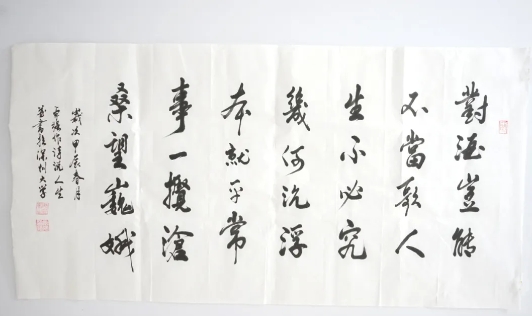 對酒豈能
不當歌人
生不必究
幾何沉浮
本就平常
事一攬滄
桑望巍峨
歲次甲辰春月
作詩說人生
並書於深圳大學